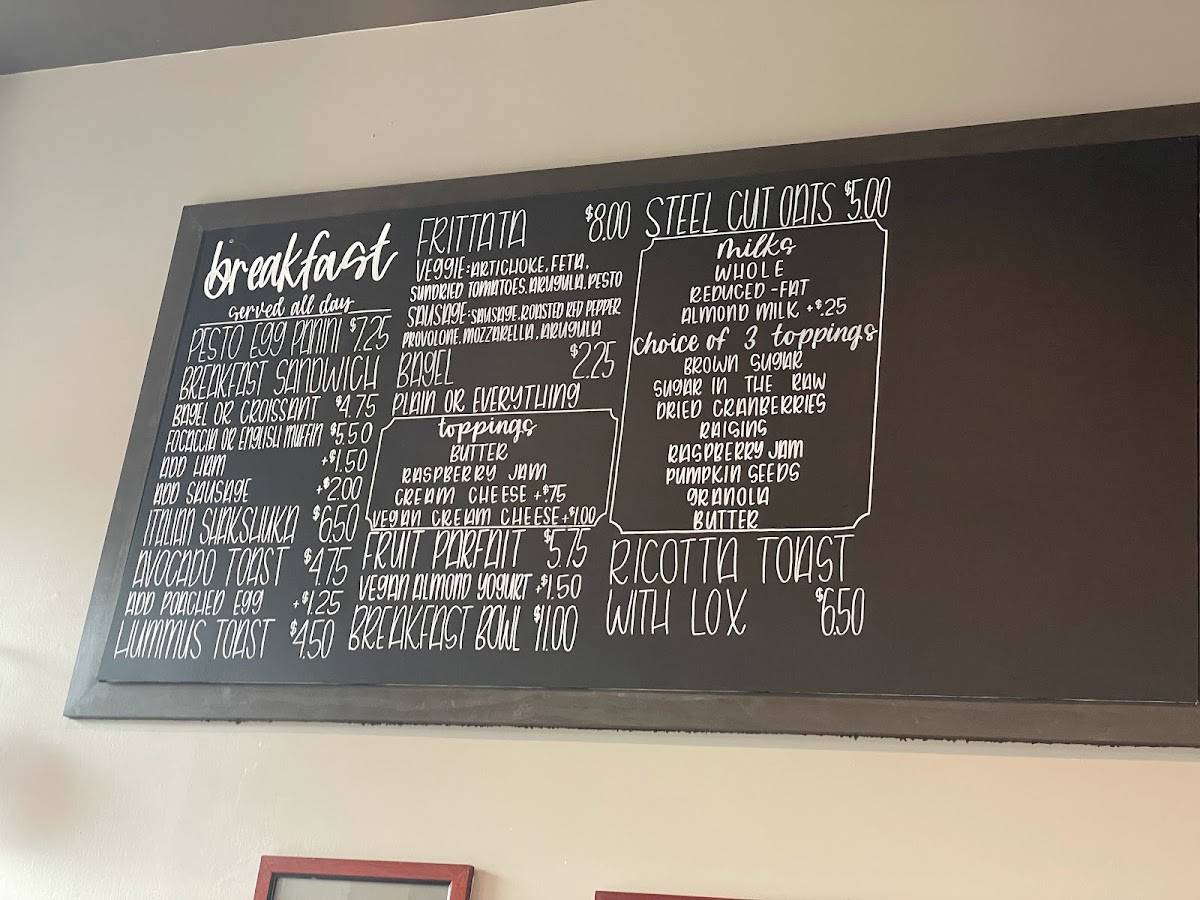 breakfast
served all day
PESTO EGG PANINI $7.25
BREAKFAST SANDWICH
BAGEL OR CROISSANT $4.75
FOCACCIA OR ENGLISH MUFFIN $5.50
ADD HAM +$1.50
ADD SAUSAGE +$2.00
ITALIAN SHAKSHUKA $6.50
AVOCADO TOAST $4.75
ADD POACHED EGG +$1.25
HUMMUS TOAST $4.50
FRITTATA $8.00
VEGGIE: ARTICHOKE, FETA,
SUNDRIED TOMATOES, ARUGULA, PESTO
SAUSAGE: SAUSAGE, ROASTED RED PEPPER
PROVOLONE, MOZZARELLA, ARUGULA
BAGEL $2.25
PLAIN OR EVERYTHING
toppings
BUTTER
RASPBERRY JAM
CREAM CHEESE +$.75
VEGAN CREAM CHEESE +$1.00
FRUIT PARFAIT $5.75
VEGAN ALMOND YOGURT +$1.50
BREAKFAST BOWL $11.00
STEEL CUT OATS $5.00
milks
WHOLE
REDUCED-FAT
ALMOND MILK +$.25
choice of 3 toppings
BROWN SUGAR
SUGAR IN THE RAW
DRIED CRANBERRIES
RAISINS
RASPBERRY JAM
PUMPKIN SEEDS
GRANOLA
BUTTER
RICOTTA TOAST
WITH LOX $6.50